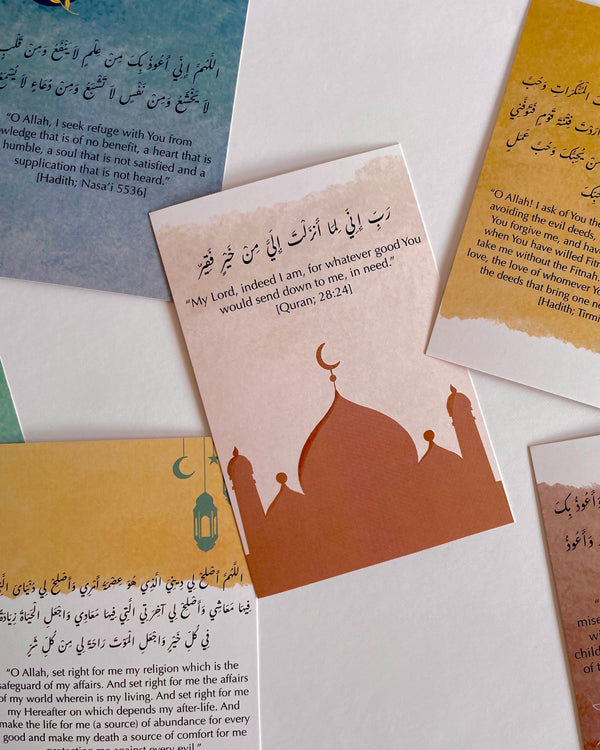 اللَّهُمَّ إِنِّي أَعُوذُ بِكَ مِنْ عِلْمٍ لَا يَنْفَعُ وَمِنْ قَلْبٍ
لَا يَخْشَعُ وَمِنْ نَفْسٍ لَا تَشْبَعُ وَمِنْ دُعَاءٍ لَا يُسْمَعُ
"O Allah, I seek refuge with You from
wledge that is of no benefit, a heart that is
humble, a soul that is not satisfied and a
supplication that is not heard."
[Hadith; Nasa'i 5536]
رَبِّ إِنِّي لِمَا أَنزَلْتَ إِلَيَّ مِنْ خَيْرٍ فَقِيرٌ
"My Lord, indeed I am, for whatever good You
would send down to me, in need."
[Quran; 28:24]
الْمُنْكَرَاتِ وَحُبَّ
أَرَدْتَ فِتْنَةَ قَوْمٍ فَتَوَفَّنِي
مَنْ يُحِبُّكَ وَحُبَّ عَمَلٍ
"O Allah! I ask of You the
avoiding the evil deeds,
You forgive me, and hav
when You have willed Fitn
take me without the Fitnah,
love, the love of whomever Yo
the deeds that bring one ne
[Hadith; Tirmi
اللَّهُمَّ أَصْلِحْ لِي دِينِيَ الَّذِي هُوَ عِصْمَةُ أَمْرِي وَأَصْلِحْ لِي دُنْيَايَ الَّتِ
فِيهَا مَعَاشِي وَأَصْلِحْ لِي آخِرَتِي الَّتِي فِيهَا مَعَادِي وَاجْعَلِ الْحَيَاةَ زِيَادَةً
فِي كُلِّ خَيْرٍ وَاجْعَلِ الْمَوْتَ رَاحَةً لِي مِنْ كُلِّ شَرٍّ
"O Allah, set right for me my religion which is the
safeguard of my affairs. And set right for me the affairs
of my world wherein is my living. And set right for me
my Hereafter on which depends my after-life. And
make the life for me (a source) of abundance for every
good and make my death a source of comfort for me
protecting me against every evil."
وَأَعُوذُ بِكَ
وَأَعُوذُ
mise
wi
child
of t